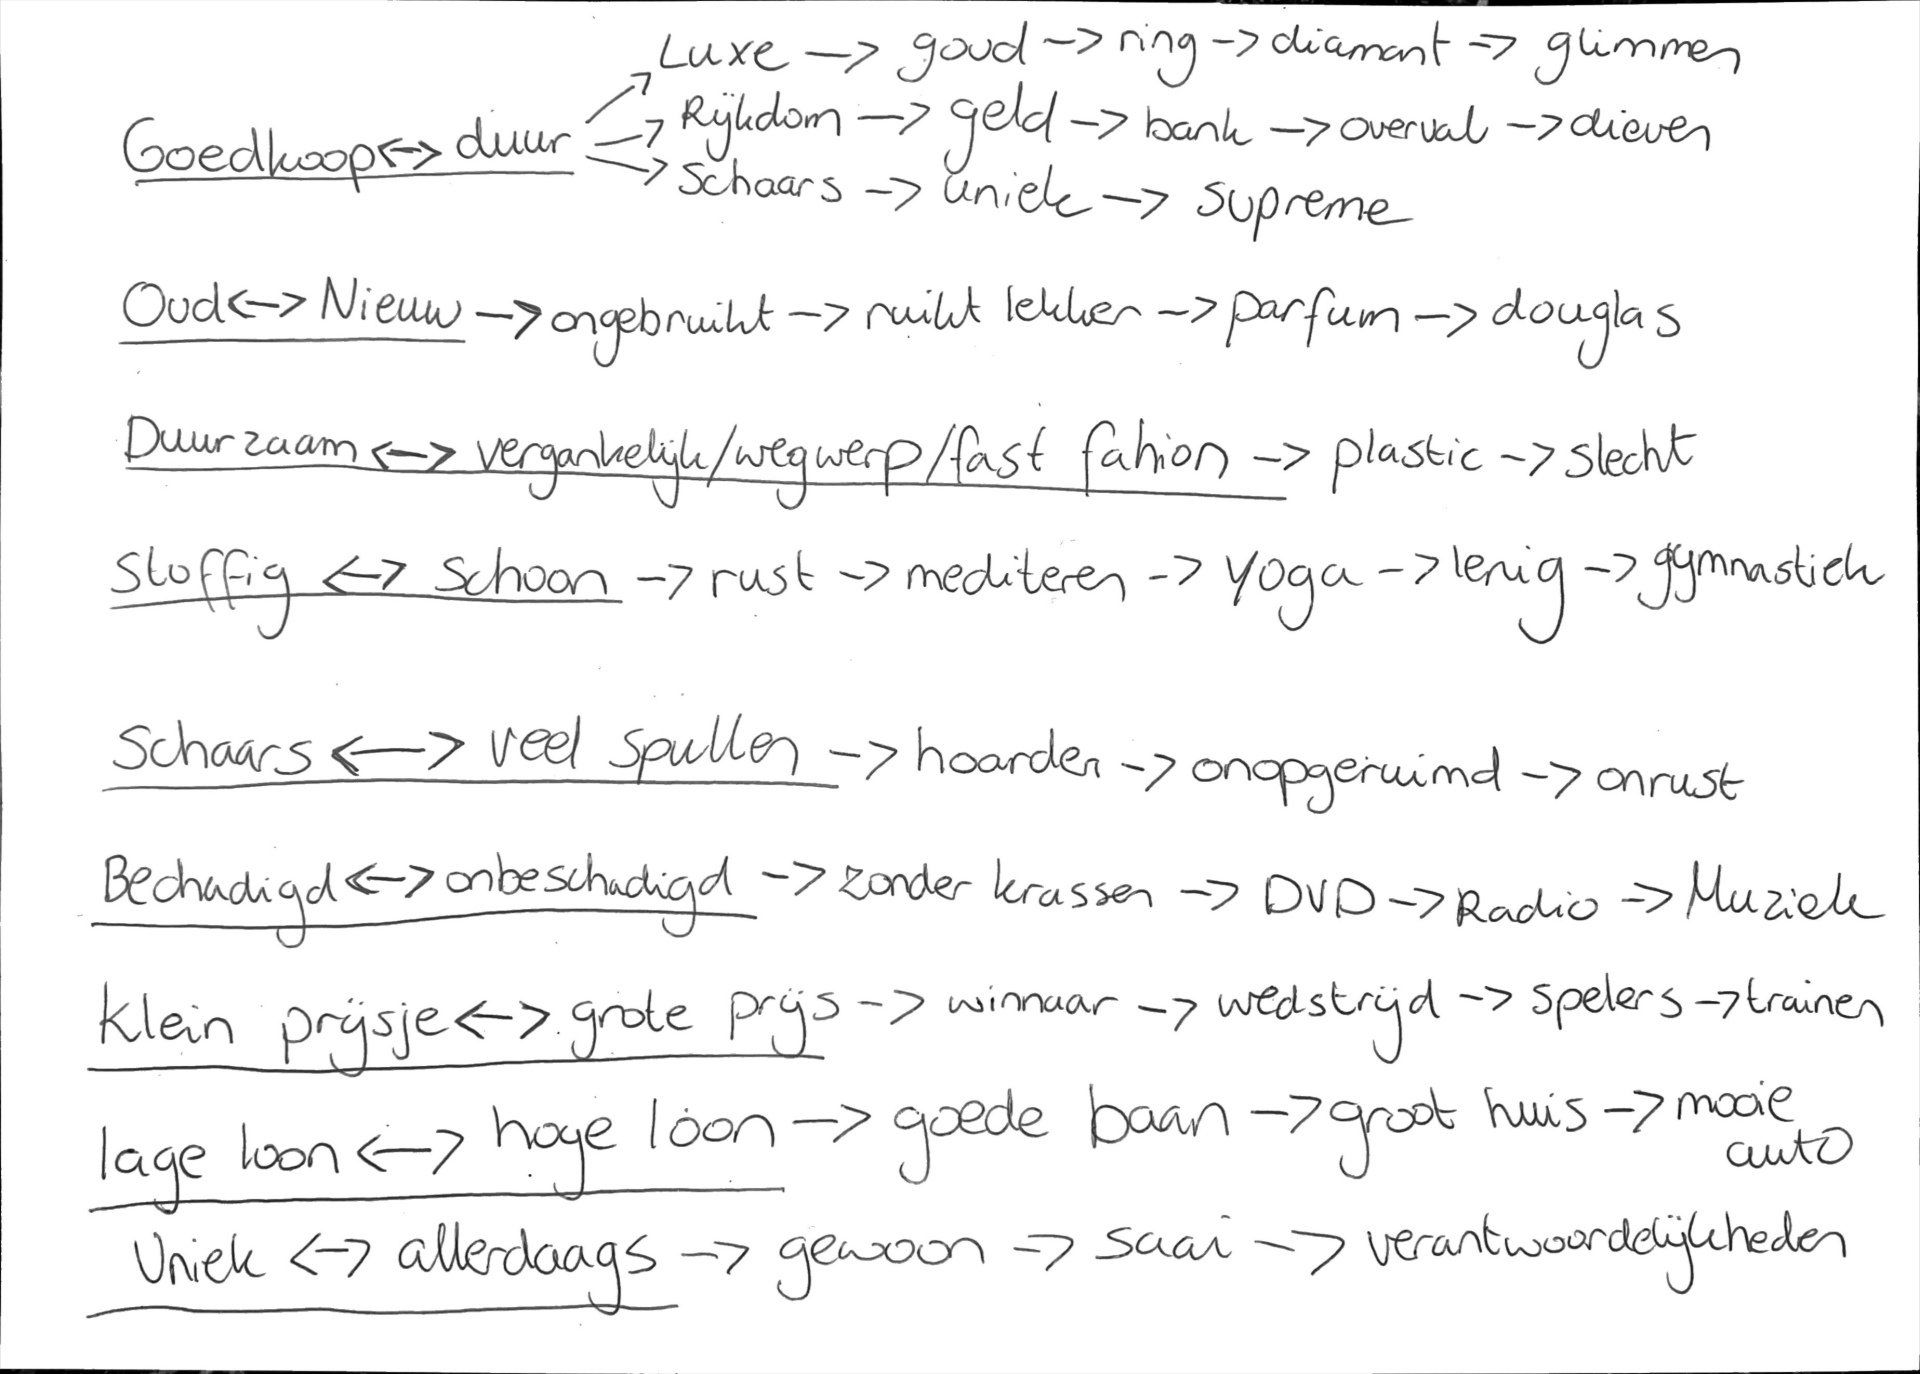 Luxe -> goud -> ring -> diamant -> glimmen
Rijkdom -> geld -> bank -> overval -> dieven
Goedkoop <-> duur
Schaars -> uniek -> supreme
Oud <-> Nieuw -> ongebruikt -> ruikt lekker -> parfum -> douglas
Duurzaam <-> vergankelijk/wegwerp/fast fahion -> plastic -> slecht
Stoffig <-> schoon -> rust -> mediteren -> yoga -> lenig -> gymnastiek
Schaars <-> veel spullen -> hoarder -> onopgeruimd -> onrust
Bechadigd <-> onbeschadigd -> zonder krassen -> DVD -> Radio -> Muziek
klein prijsje <-> grote prijs -> winnaar -> wedstrijd -> spelers -> trainen
lage loon <-> hoge loon -> goede baan -> groot huis -> mooie
auto
Uniek <-> allerdaags -> gewoon -> saai -> verantwoordelijkheden